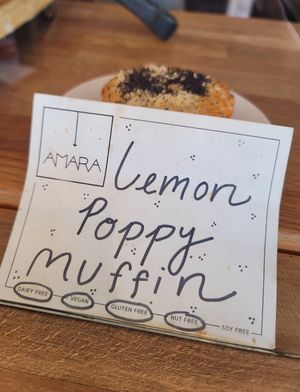 AMARA
Lemon
Poppy
Muffin
DAIRY FREE VEGAN GLUTEN FREE NUT FREE SOY FREE